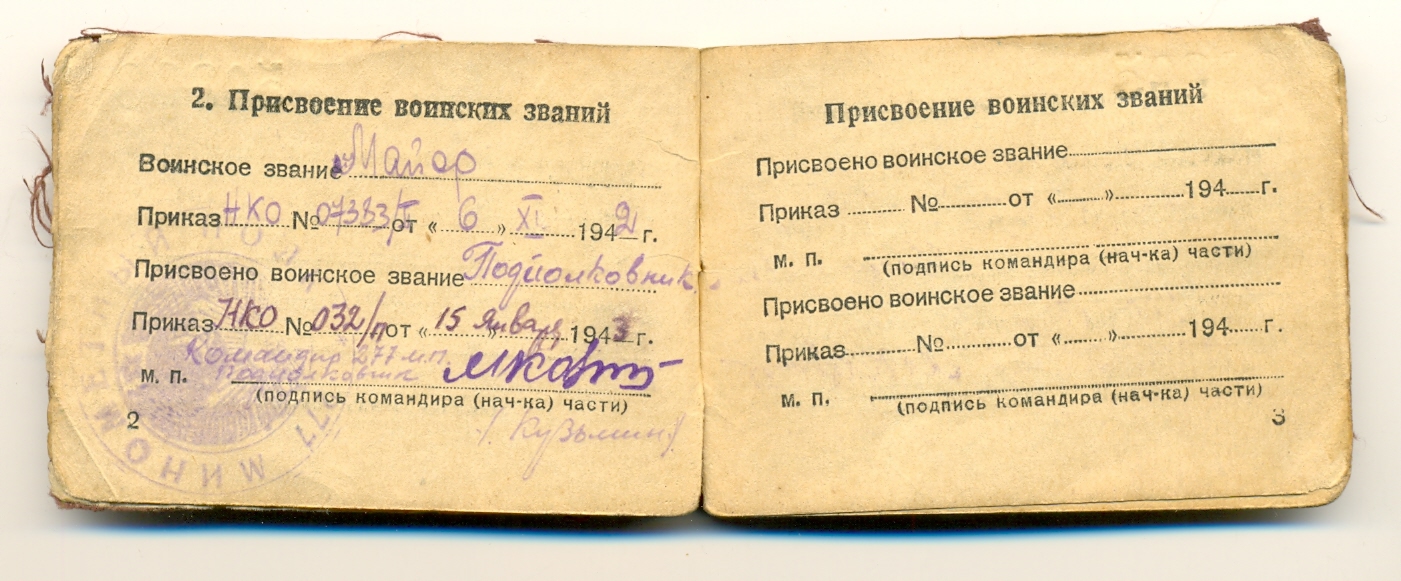 2. Присвоение воинских званий
Воинское звание Майор
Приказ НКО № 07383/п от « 6 » XI 1942 г.
Присвоено воинское звание Подполковник
Приказ НКО № 032/п от « 15 » Января 1943 г.
Командир 277 м.п.
подполковник
М. П.
(подпись командира (нач-ка) части)
/Кузьмин/
2
МИНОМЕТНЫЙ
277
Присвоение воинских званий
Присвоено воинское звание
Приказ № от « » 194 г.
М. П.
(подпись командира (нач-ка) части)
Присвоено воинское звание
Приказ № от « » 194 г.
М. П.
(подпись командира (нач-ка) части)
3